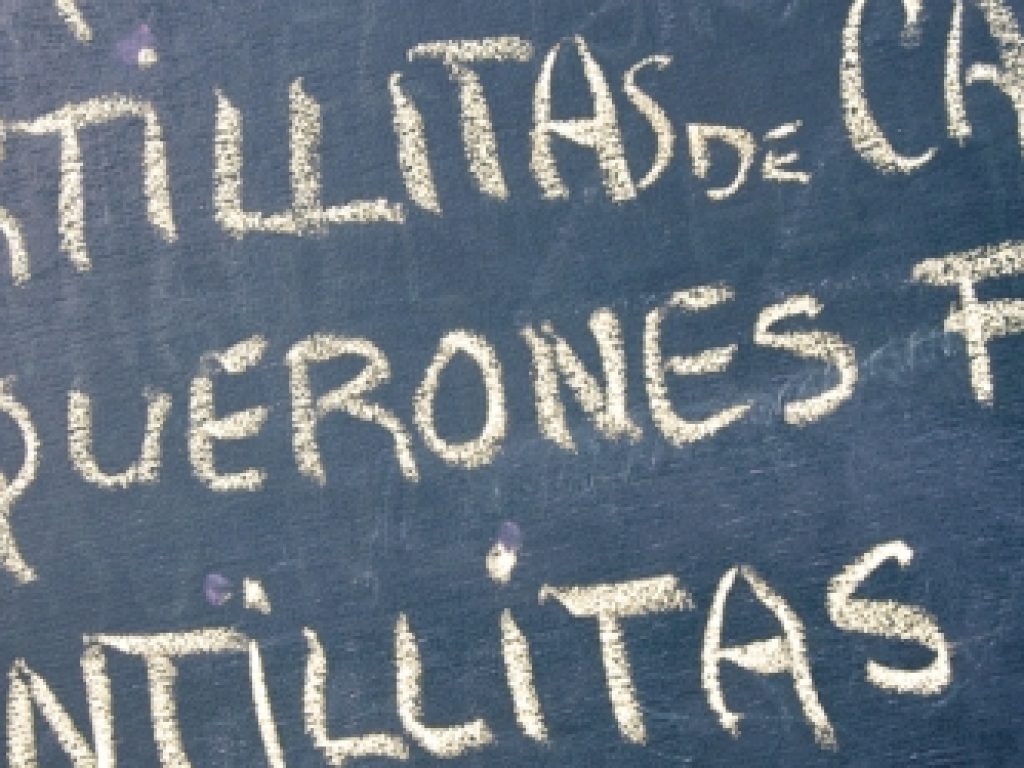 TiLLiTAS DE CA
QUERONES F
NTiLLiTAS